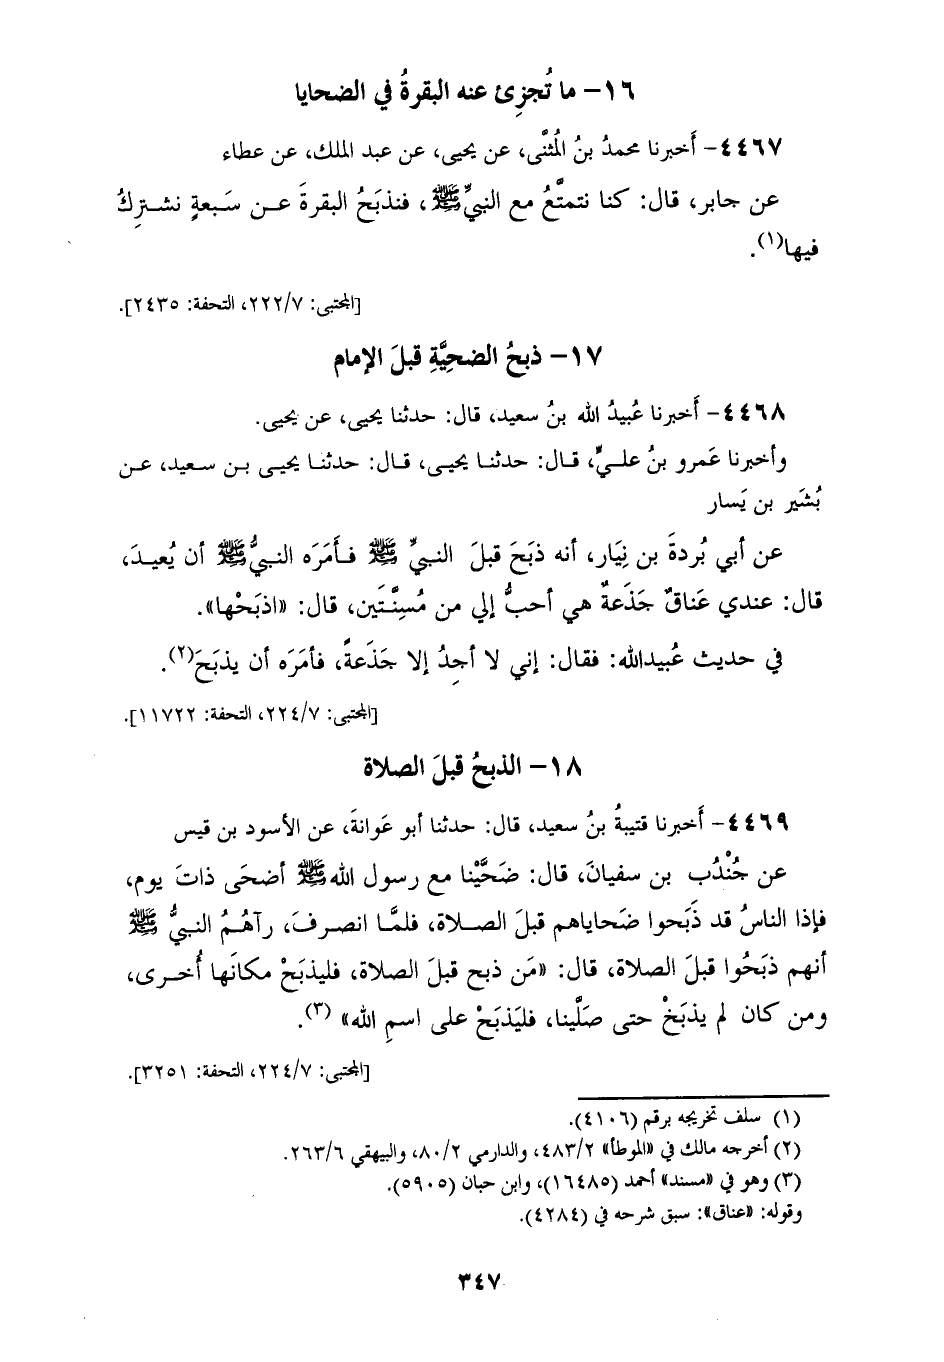 ١٦- ما تُجزِئ عنه البقرةُ في الضحايا
٤٤٦٧- أَخبرنا محمدُ بنُ المُثنَّى، عن يحيى، عن عبد الملك، عن عطاء
عن جابر، قال: كنا نتمتَّعُ مع النبيِّ ﷺ، فنذبَحُ البقرةَ عن سَبعةٍ نشترِكُ
فيها(١).
[المجتبى: ٢٢٢/٧، التحفة: ٢٤٣٥].
١٧- ذبحُ الضحيَّةِ قبلَ الإمام
٤٤٦٨- أَخبرنا عُبيدُ الله بنُ سعيد، قال: حدثنا يحيى، عن يحيى.
وأخبرنا عَمرو بنُ عليٍّ، قال: حدثنا يحيى، قال: حدثنا يحيى بن سعيد، عن
بُشَير بن يَسار
عن أبي بُردةَ بن نِيَار، أنه ذبَحَ قبلَ النبيِّ ﷺ فأمَرَه النبيُّ ﷺ أن يُعيدَ،
قال: عندي عَناقٌ جَذَعةٌ هي أحبُّ إلي من مُسِنَّتَين، قال: «اذبَحْها».
في حديث عُبيدالله: فقال: إني لا أجِدُ إلا جَذَعةً، فأمَرَه أن يذبَحَ(٢).
[المجتبى: ٢٢٤/٧، التحفة: ١١٧٢٢].
١٨- الذبحُ قبلَ الصلاة
٤٤٦٩- أَخبرنا قتيبةُ بنُ سعيد، قال: حدثنا أبو عَوانةَ، عن الأسود بن قيس
عن جُنْدُب بن سفيانَ، قال: ضَحَّيْنا مع رسول الله ﷺ أضحَى ذاتَ يوم،
فإذا الناسُ قد ذَبَحوا ضَحاياهم قبلَ الصلاة، فلمَّا انصرفَ، رآهُمُ النبيُّ ﷺ
أنهم ذبَحُوا قبلَ الصلاة، قال: «مَن ذبح قبلَ الصلاة، فليذبَحْ مكانَها أُخرى،
ومن كان لم يذبَحْ حتى صَلَّينا، فليَذبَحْ على اسمِ الله» (٣).
[المجتبى: ٢٢٤/٧، التحفة: ٣٢٥١].
(١) سلف تخريجه برقم (٤١٠٦).
(٢) أخرجه مالك في «الموطأ» ٤٨٣/٢، والدارمي ٨٠/٢، والبيهقي ٢٦٣/٦.
(٣) وهو في «مسند» أحمد (١٦٤٨٥)، وابن حبان (٥٩٠٥).
وقوله: «عناق»: سبق شرحه في (٤٢٨٤).
٣٤٧